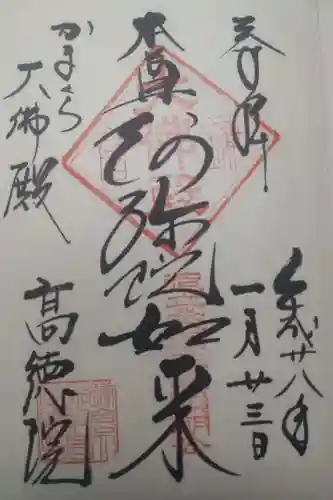 奉拝
平成廿八年
一月廿三日
本尊
阿弥陀如来
かまくら
大佛殿
高徳院